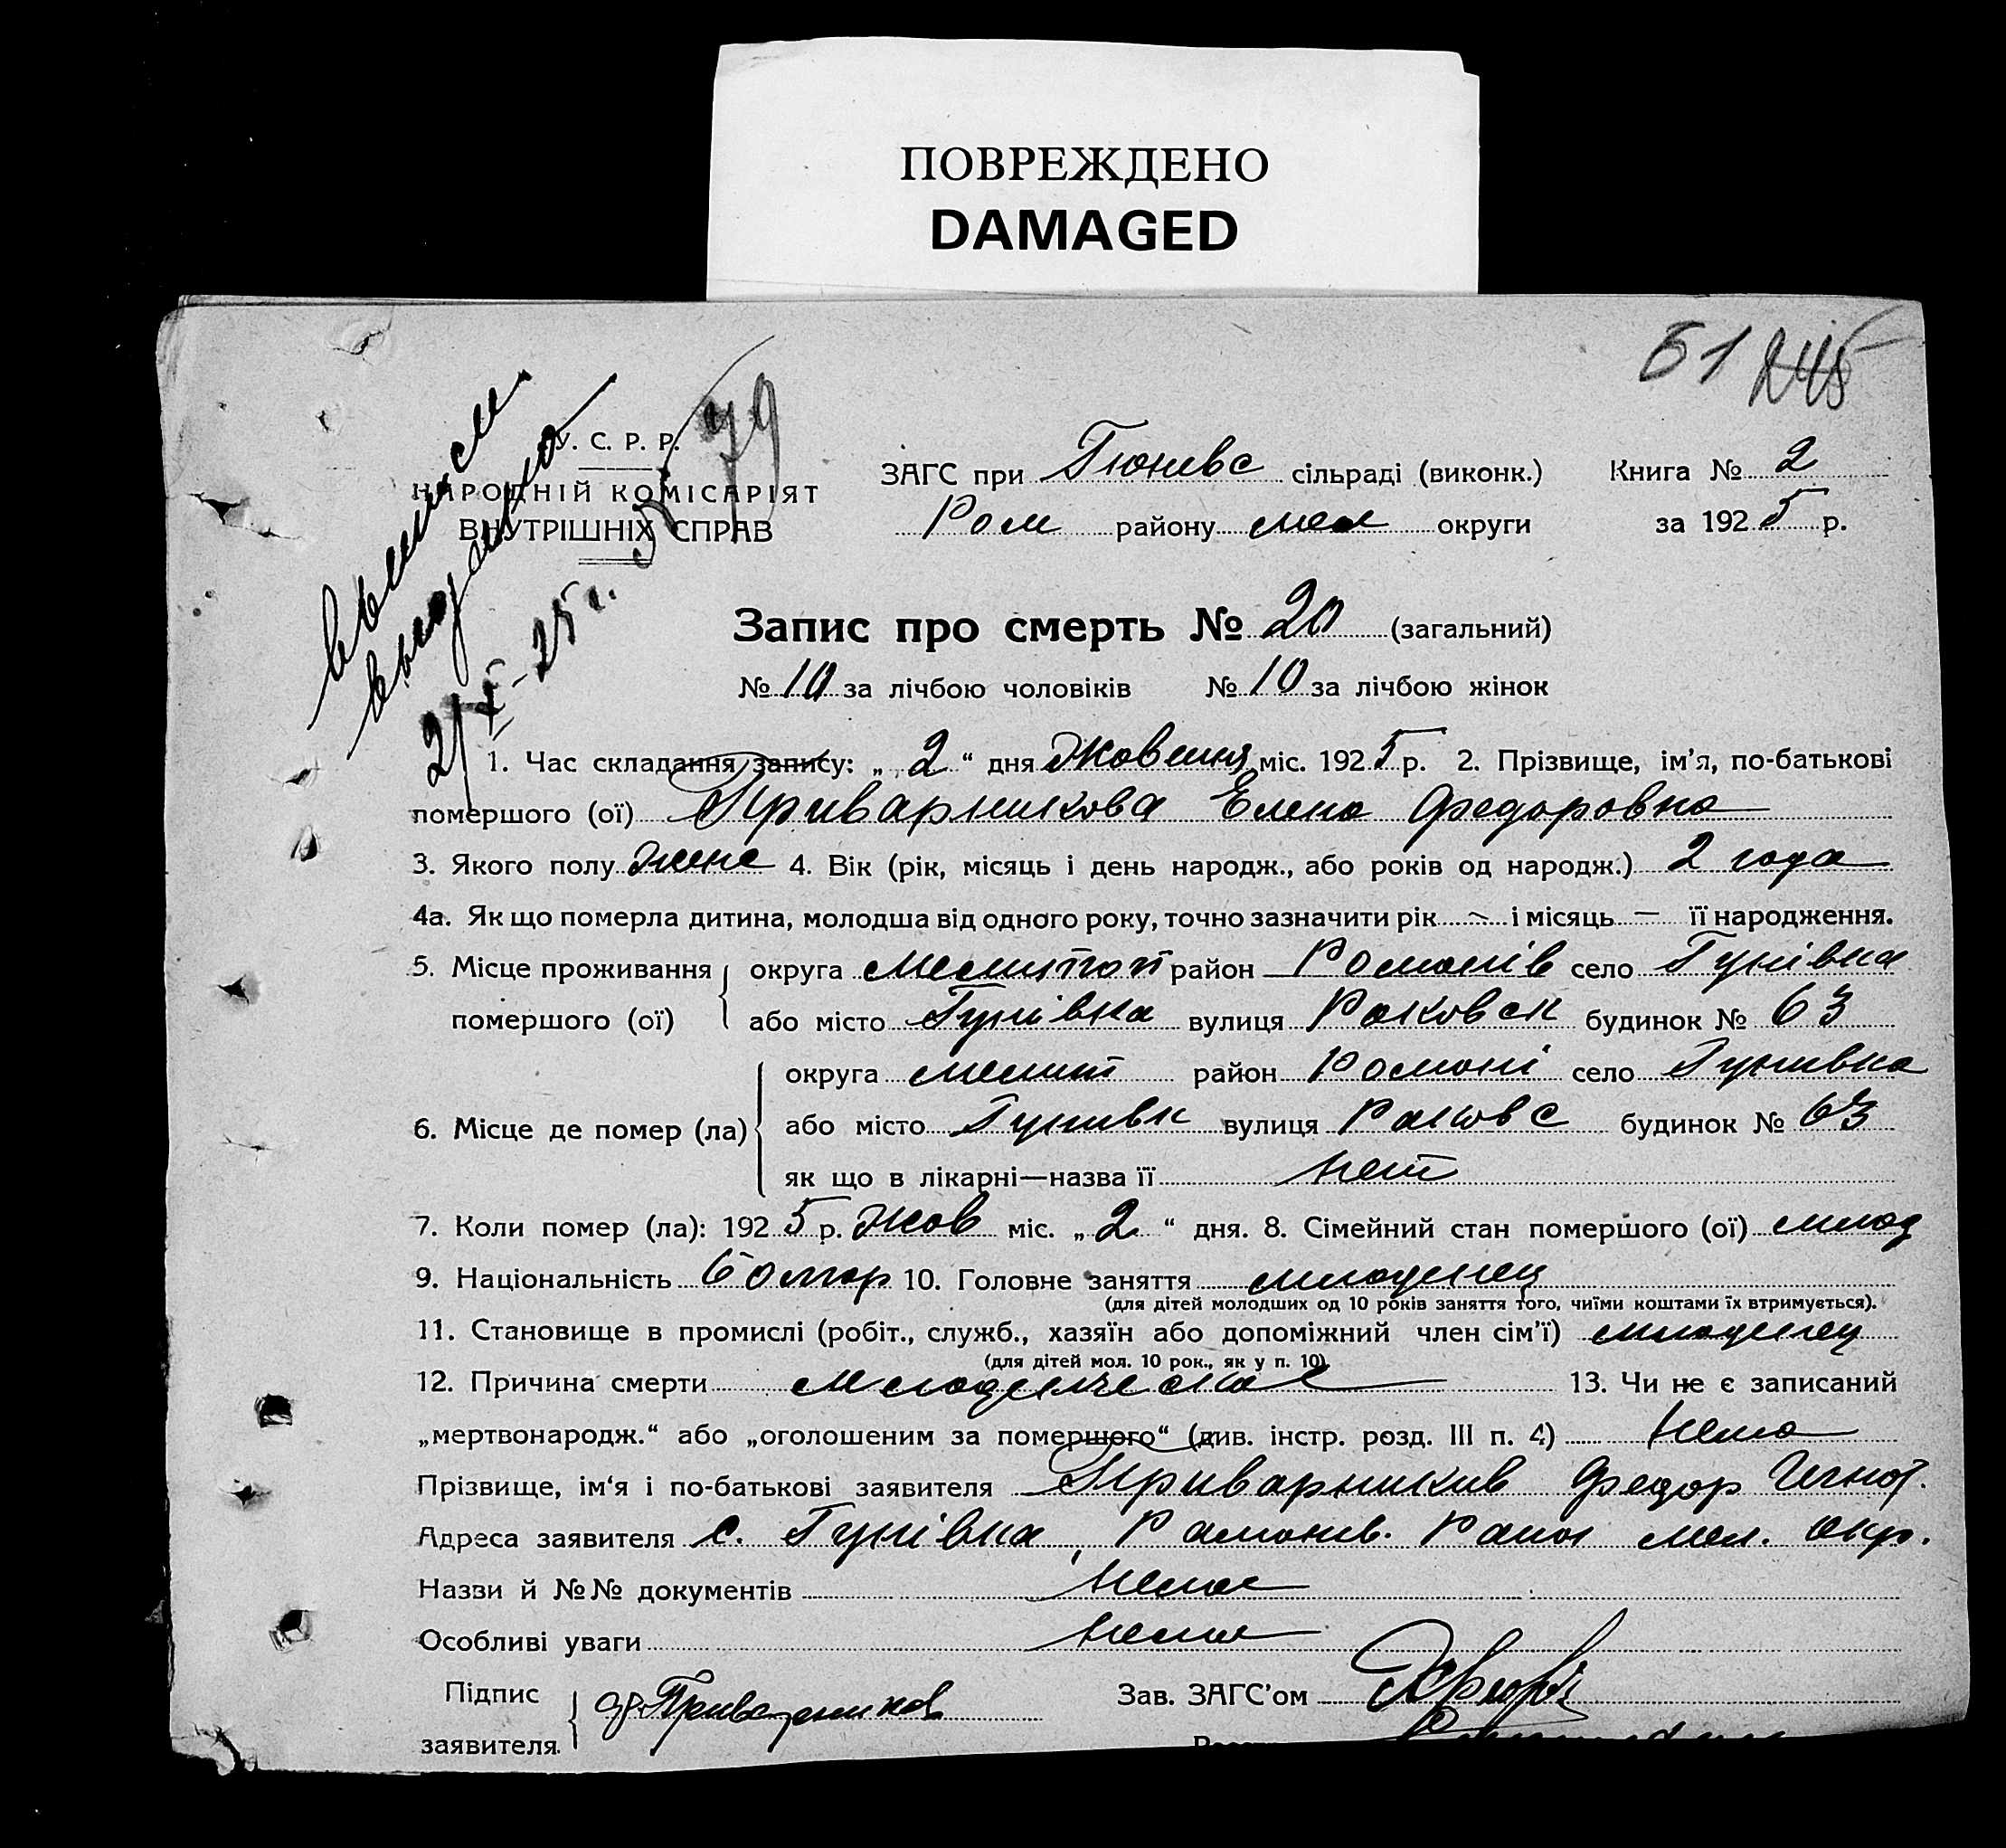 ПОВРЕЖДЕНО
DAMAGED
51 245
выпись
выдана
2/X-25 г.
79
У. С. Р. Р.
НАРОДНІЙ КОМІСАРІЯТ
ВНУТРІШНІХ СПРАВ
ЗАГС при Гюневс сільраді (виконк.) Книга № 2
Ром району мел округи за 1925 р.
Запис про смерть № 20 (загальний)
№ 10 за лічбою чоловіків № 10 за лічбою жінок
1. Час складання запису: „ 2 “ дня Жовтня міс. 1925 р. 2. Прізвище, ім'я, по-батькові
помершого (ої) Приварникова Елена Федоровна
3. Якого полу жене 4. Вік (рік, місяць і день народж., або років од народж.) 2 года
4а. Як що померла дитина, молодша від одного року, точно зазначити рік — і місяць — її народження.
5. Місце проживання округа Мелитоп район Романів село Гунівка
помершого (ої) або місто Гунівка вулиця Раковск будинок № 63
округа мелит район Романі село Гунивка
6. Місце де помер (ла) або місто Гунивк вулиця Раковс будинок № 63
як що в лікарні—назва її нет
7. Коли помер (ла): 1925 р. Жов міс. „ 2 “ дня. 8. Сімейний стан помершого (ої) млад
9. Національність болгар 10. Головне заняття младенец
(для дітей молодших од 10 років заняття того, чиїми коштами їх втримується).
11. Становище в промислі (робіт., служб., хазяїн або допоміжний член сім'ї) младенец
(для дітей мол. 10 рок., як у п. 10).
12. Причина смерти младенческая 13. Чи не є записаний
„мертвонародж.“ або „оголошеним за помершого“ (див. інстр. розд. III п. 4) нема
Прізвище, ім'я і по-батькові заявителя Приварников Федор Игнат.
Адреса заявителя с. Гунівка, Раманив. Район мел. окр.
Назви й №№ документів нема
Особливі уваги нема
Підпис Приварников Зав. ЗАГС'ом
заявителя.